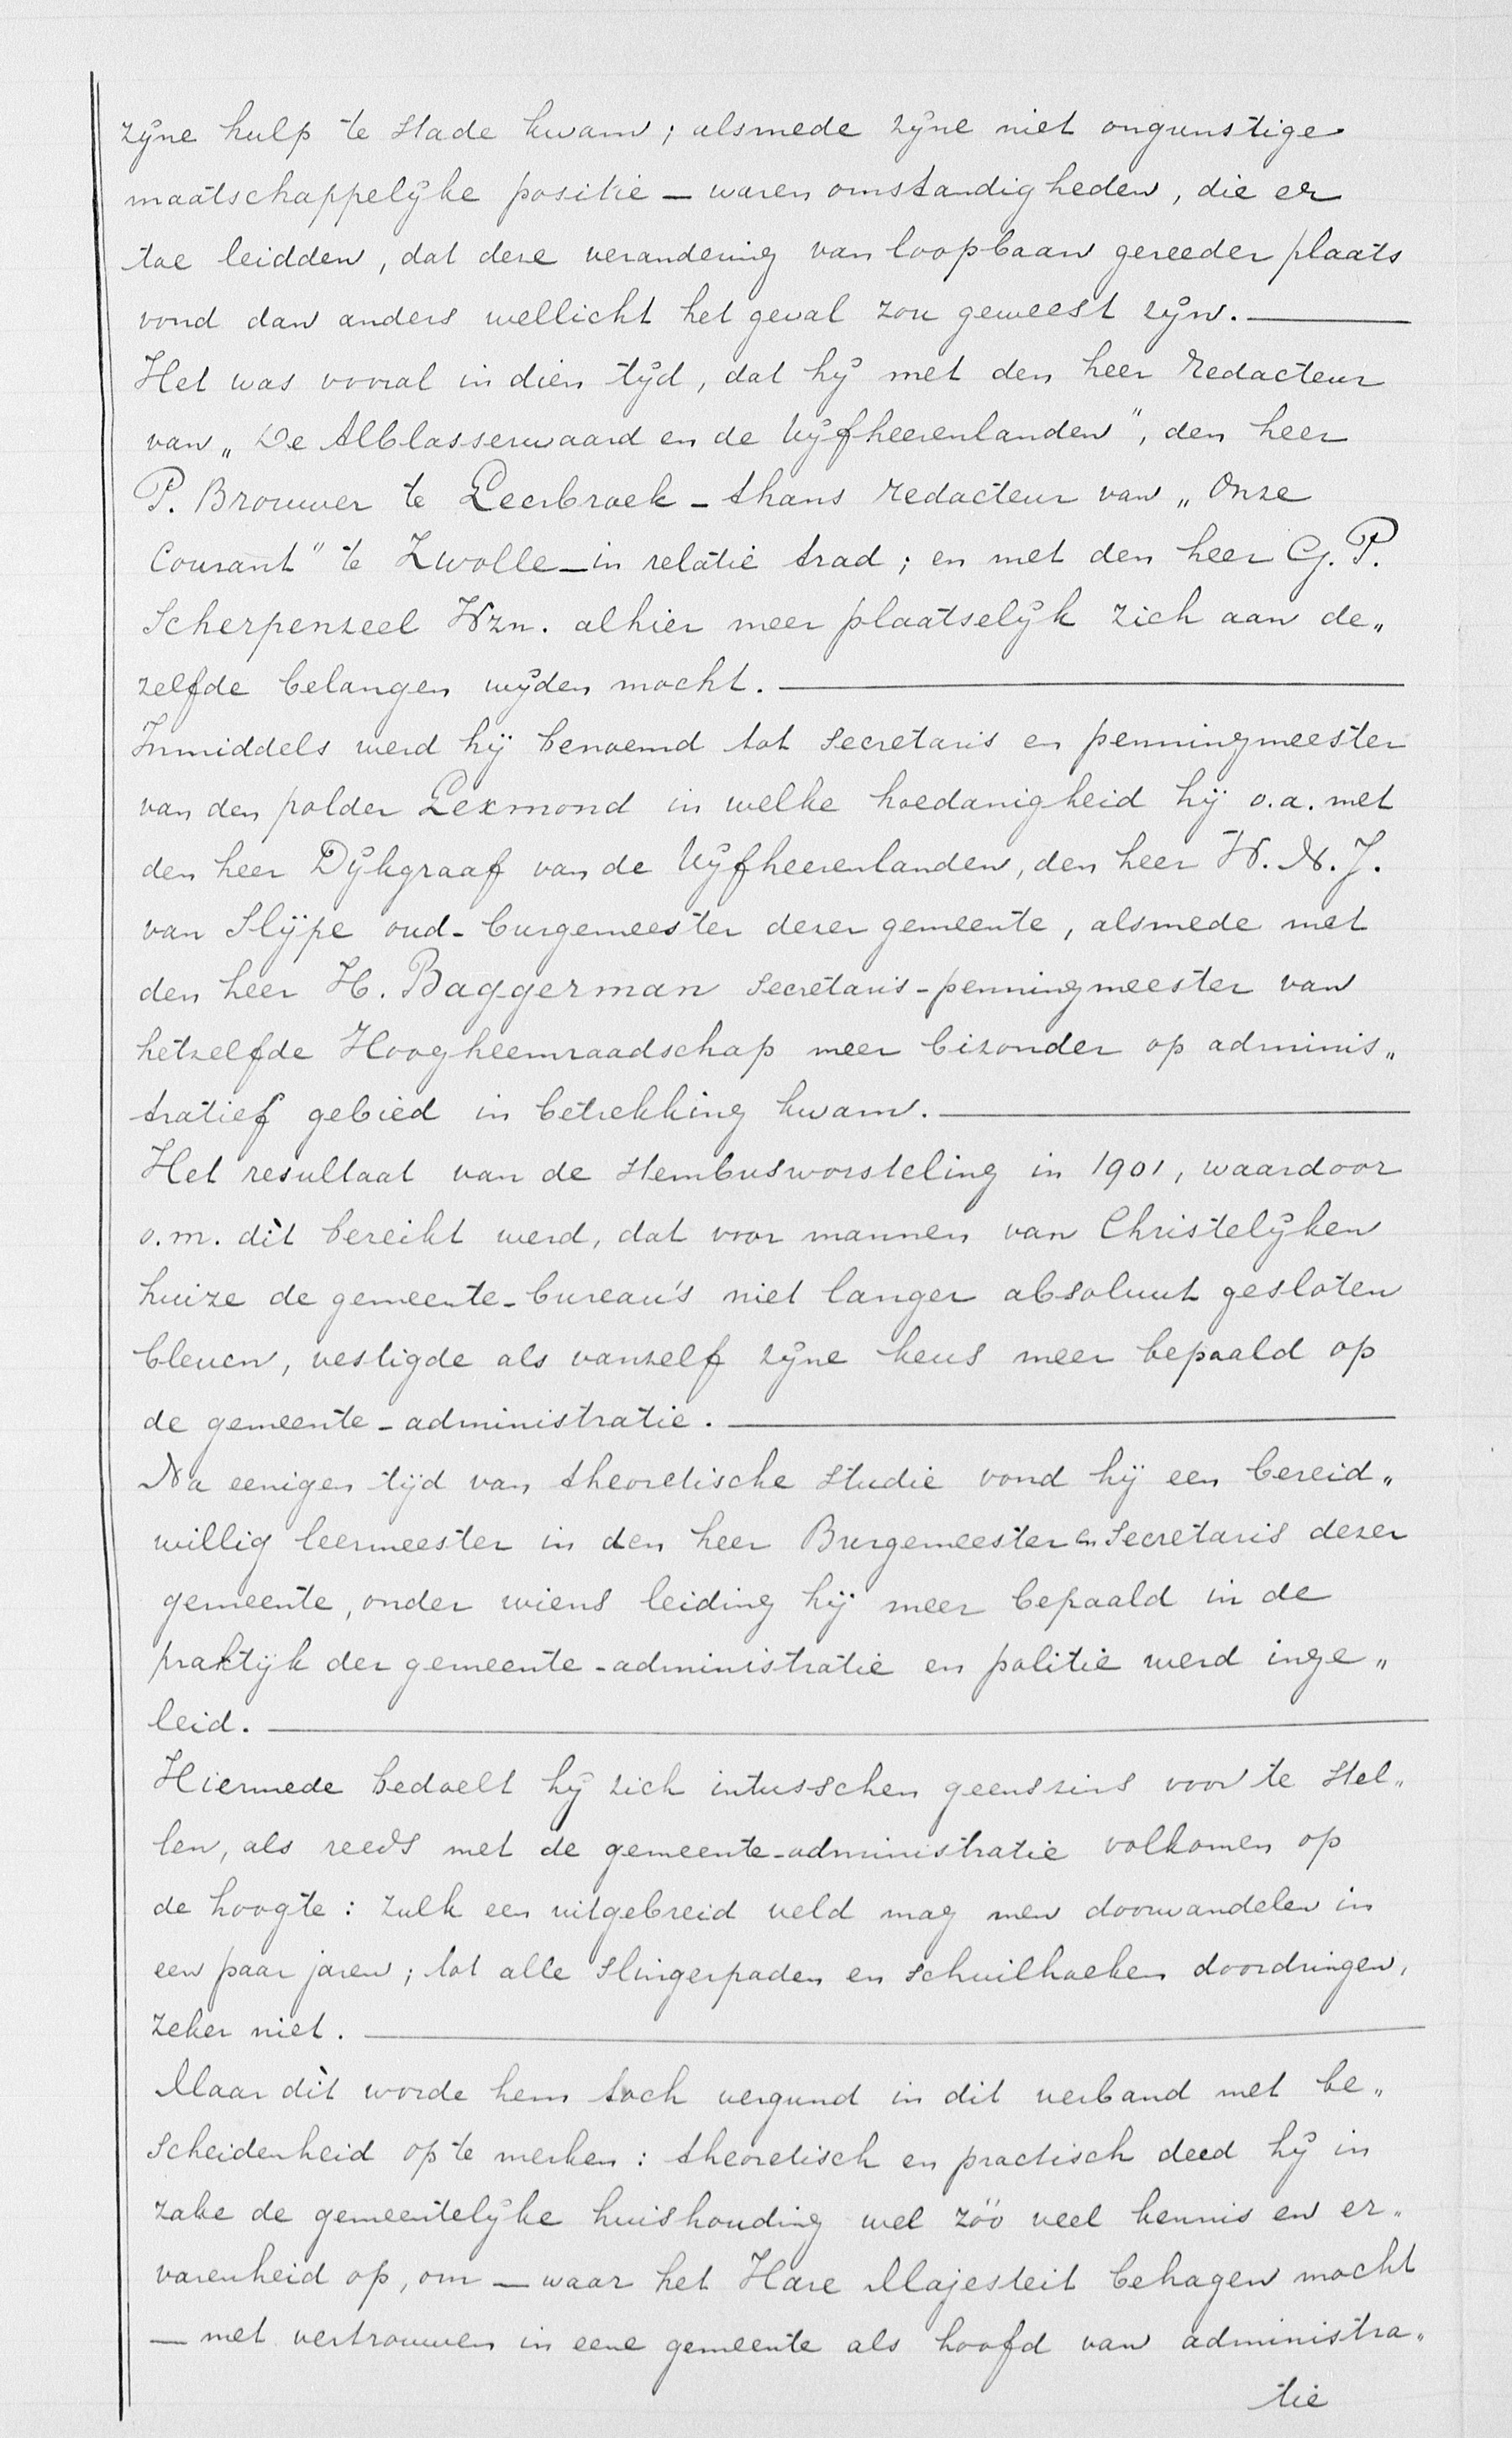 zijne hulp te stade kwam; alsmede zijne niet ongunstige
maatschappelijke positie — waren omstandigheden, die er
toe leidden, dat deze verandering van loopbaan gereeder plaats
vond dan anders wellicht het geval zou geweest zijn. —
Het was vooral in dien tijd, dat hij met den heer Redacteur
van „De Alblasserwaard en de Vijfheerenlanden", den heer
P. Brouwer te Leerbroek - thans redacteur van „Onze
Courant" te Zwolle — in relatie trad; en met den heer G. P.
Scherpenzeel Wzn. alhier meer plaatselijk zich aan de„
zelfde belangen wijden mocht. —
Inmiddels werd hij benoemd tot secretaris en penningmeester
van den polder Lexmond in welke hoedanigheid hij o.a. met
den heer Dijkgraaf van de Vijfheerenlanden, den heer W. N. J.
van Slijpe oud-burgemeester dezer gemeente, alsmede met
den heer H. Baggerman secretaris-penningmeester van
hetzelfde Hoogheemraadschap meer bizonder op adminis„
tratief gebied in betrekking kwam. —
Het resultaat van de stembusworsteling in 1901, waardoor
o.m. dìt bereikt werd, dat voor mannen van Christelijken
huize de gemeente-bureau's niet langer absoluut gesloten
bleven, vestigde als vanzelf zijne keus meer bepaald op
de gemeente-administratie. —
Na eenigen tijd van theoretische studie vond hij een bereid„
willig leermeester in den heer Burgemeester en Secretaris dezer
gemeente, onder wiens leiding hij meer bepaald in de
praktijk der gemeente-administratie en politie werd inge„
leid. —
Hiermede bedoelt hij zich intusschen geenszins voor te stel„
len, als reeds met de gemeente-administratie volkomen op
de hoogte: zulk een uitgebreid veld mag men doorwandelen in
een paar jaren; tot alle slingerpaden en schuilhoeken doordringen,
zeker niet. —
Maar dìt worde hem toch vergund in dit verband met be„
scheidenheid op te merken: theoretisch en practisch deed hij in
zake de gemeentelijke huishouding wel zóó veel kennis en er„
varenheid op, om — waar het Hare Majesteit behagen mocht
— met vertrouwen in eene gemeente als hoofd van administra„
tie